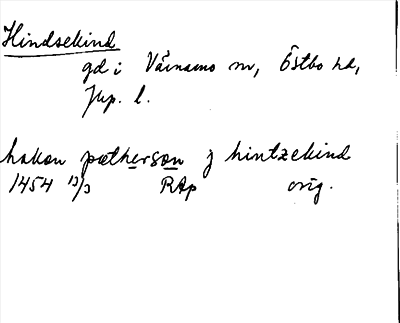 Hindsekind
gd i Värnamo sn, Östbo hd,
Jkp. l.
hakon pætherson j hintzekind
1454 13/3 RAp orig.